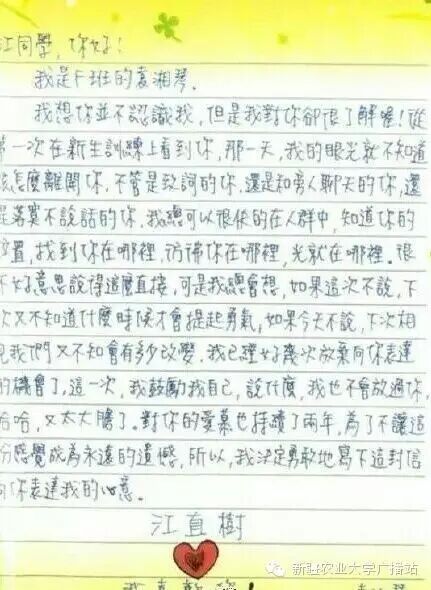 江同學，你好！
我是F班的袁湘琴。
我想你並不認識我，但是我對你卻很了解喔！從
第一次在新生訓練上看到你，那一天，我的眼光就不知道
該怎麼離開你，不管是致詞的你，還是和旁人聊天的你，還
是落寞不說話的你，我總可以很快的在人群中，知道你的
位置，找到你在哪裡，彷彿你在哪裡，光就在哪裡。很
不好意思說得這麼直接，可是我總會想，如果這次不說，下
次又不知道什麼時候才會提起勇氣，如果今天不說，下次相
見我們又不知會有多少改變。我已經好幾次放棄向你表達
的機會了，這一次，我鼓勵我自己，說什麼，我也不會放過你，
哈哈，又太大膽了。對你的愛慕也持續了兩年，為了不讓這
份感覺成為永遠的遺憾，所以，我決定勇敢地寫下這封信
向你表達我的心意。
江直樹
新疆农业大学广播站